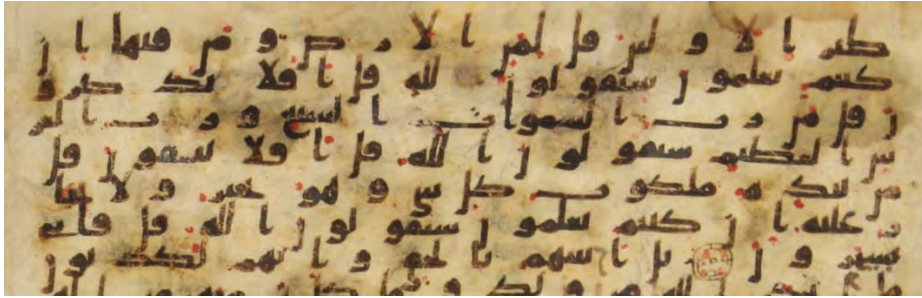 طير الاولين قل لمن الارض ومن فيها ان
كنتم تعلمون سيقولون لله قل افلا تذكرو
ن قل من رب السموات السبع ورب العر
ش العظيم سيقولون الله قل افلا تتقون قل
من بيده ملكوت كل شي وهو يجير ولا يجا
ر عليه ان كنتم تعلمون سيقولون الله قل فانى
تسحرون بل اتينهم بالحق وانهم لكذبون